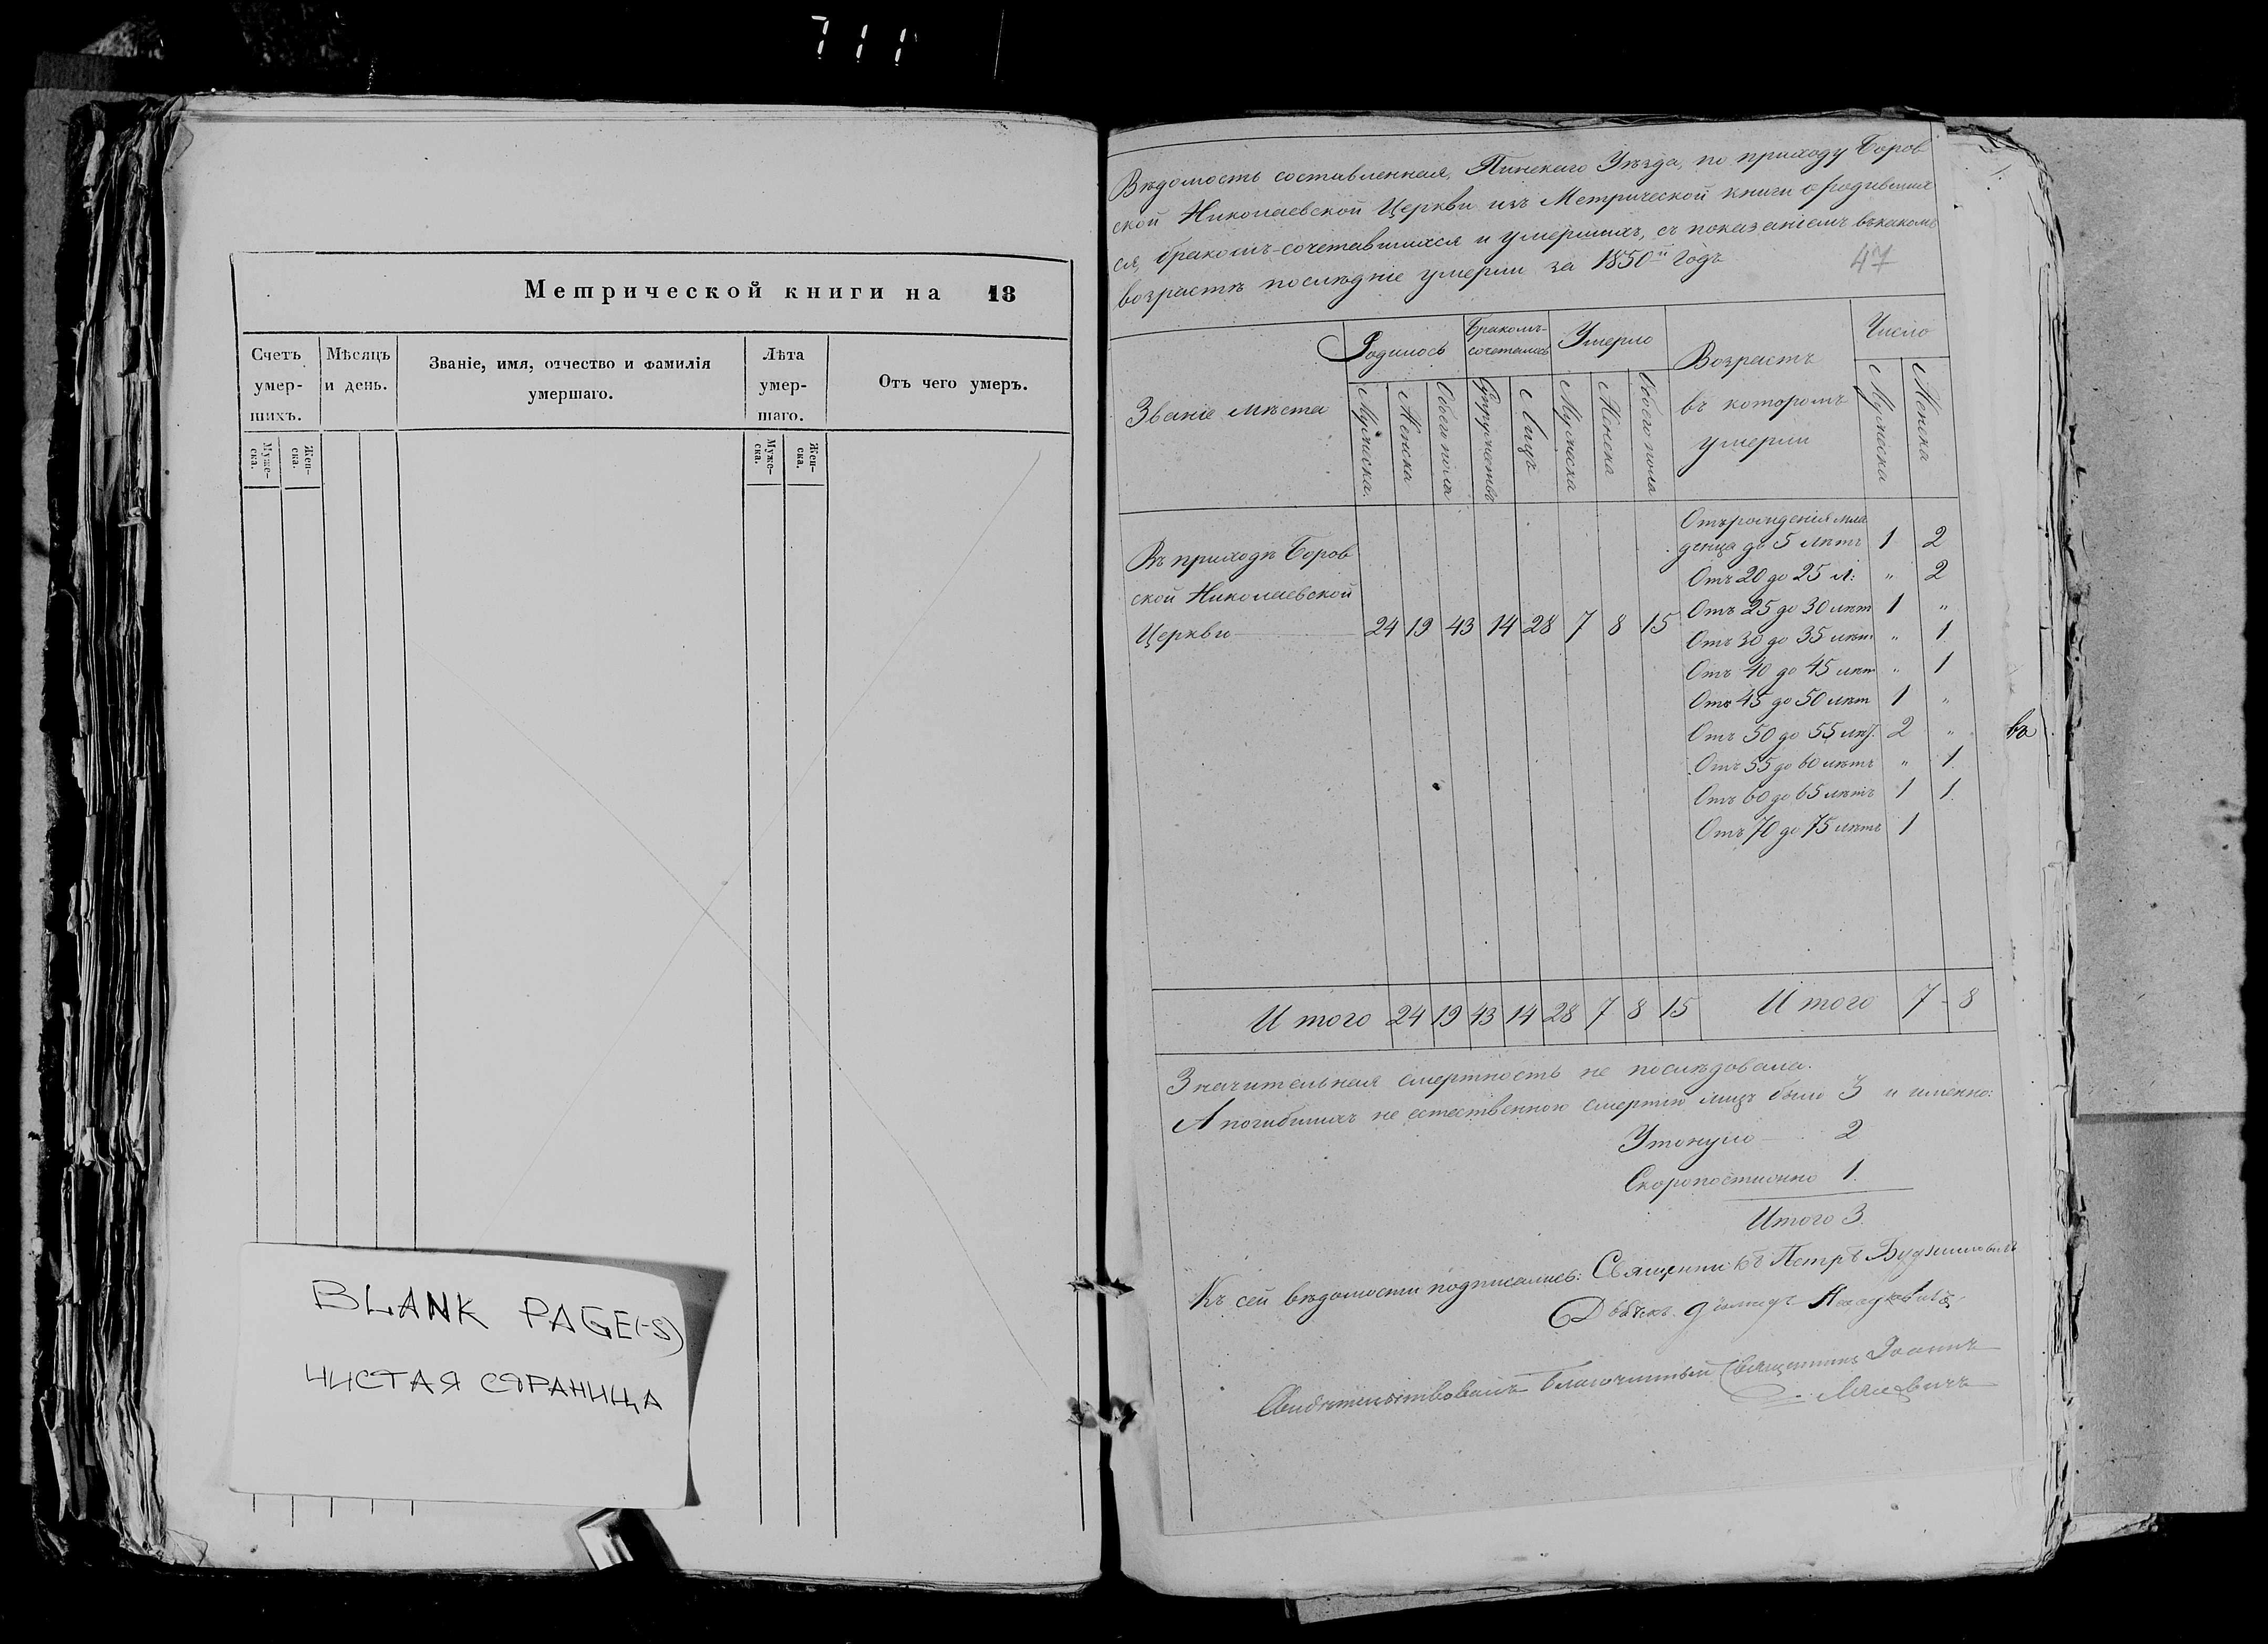 Метрической книги на 18
Счетъ умершихъ.
Мѣсяцъ и день.
Званіе, имя, отчество и фамилія умершаго.
Лѣта умершаго.
Отъ чего умеръ.
Муже-ска.
Жен-ска.
Муже-ска.
Жен-ска.
BLANK PAGE(-S)
ЧИСТАЯ СТРАНИЦА
Вѣдомость составленная, Пинскаго Уѣзда, по приходу Боров
ской Николаевской Церкви изъ Метрической книги о родивших
ся, бракомъ-сочетавшихся и умершихъ, съ показаніемъ въ какомъ
возрастѣ послѣдніе умерли за 1850й Годъ
47
Званіе мѣста
Родилось
Бракомъ-сочеталось
Умерло
Возрастъ въ которомъ умерли
Число
Мужеска
Женска
Обоего пола
Супружествъ
Лицъ
Мужеска
Женска
Обоего пола
Мужеска
Женска
Въ приходѣ Боров
ской Николаевской
Церкви 24 19 43 14 28 7 8 15
Отъ рожденія мла
денца до 5 лѣтъ 1 2
Отъ 20 до 25 л: " 2
Отъ 25 до 30 лѣт 1 "
Отъ 30 до 35 лѣт " 1
Отъ 40 до 45 лѣт " 1
Отъ 45 до 50 лѣт 1 "
Отъ 50 до 55 лѣт. 2 "
Отъ 55 до 60 лѣтъ " 1
Отъ 60 до 65 лѣтъ 1 1
Отъ 70 до 75 лѣтъ 1
Итого 24 19 43 14 28 7 8 15 Итого 7 - 8
Значительная смертность не послѣдовала.
А погибшихъ не естественною смертію лицъ было 3 и именно:
Утонуло 2
Скоропостижно 1.
Итого 3.
Къ сей вѣдомости подписались: Священникъ Петръ
Дьячекъ
Свидѣтельствовалъ Благочинный Священникъ Іоаннъ